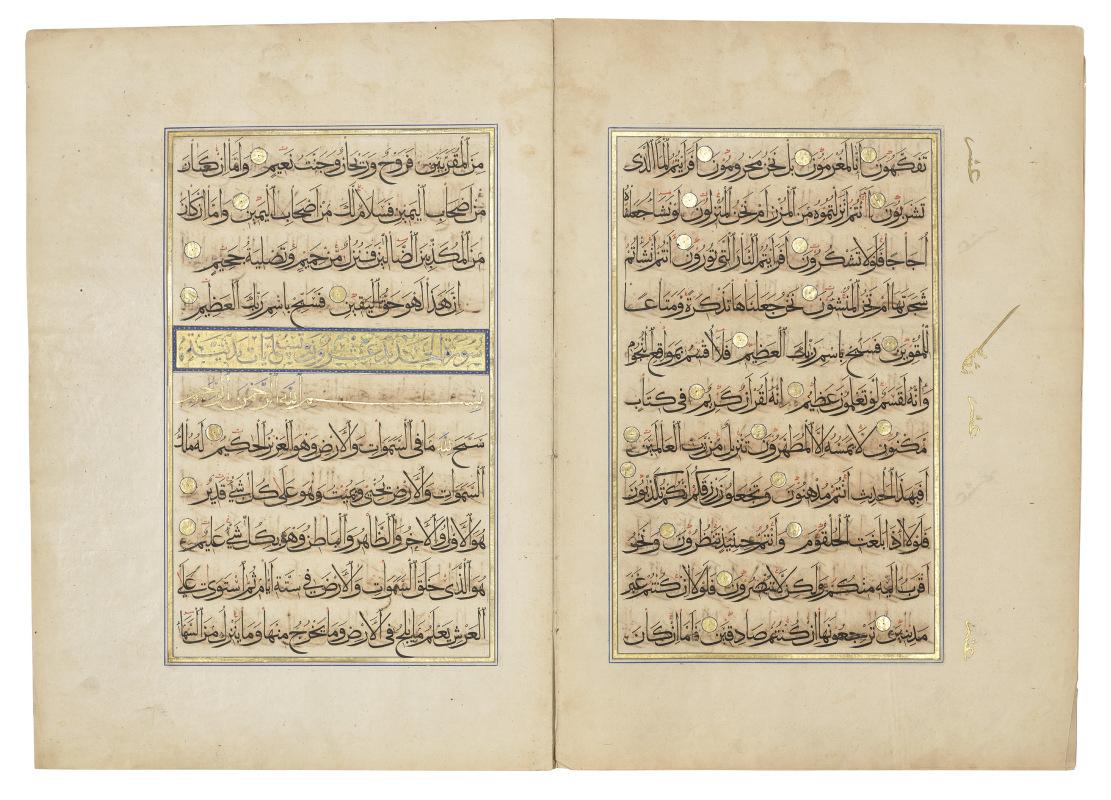 تفكهون انا لمغرمون بل نحن محرومون افرايتم الماء الذى
تشربون ءانتم انزلتموه من المزن ام نحن المنزلون لو نشاء جعلناه
اجاجا فلولا تشكرون افرايتم النار التى تورون ءانتم انشاتم
شجرتها ام نحن المنشؤن نحن جعلناها تذكرة ومتاعا
للمقوين فسبح باسم ربك العظيم فلا اقسم بمواقع النجوم
وانه لقسم لو تعلمون عظيم انه لقران كريم فى كتاب
مكنون لا يمسه الا المطهرون تنزيل من رب العالمين
افبهذا الحديث انتم مدهنون وتجعلون رزقكم انكم تكذبون
فلولا اذا بلغت الحلقوم وانتم حينئذ تنظرون ونحن
اقرب اليه منكم ولكن لا تبصرون فلولا ان كنتم غير
مدينين ترجعونها ان كنتم صادقين فاما ان كان
عشر
عشر
عشر
من المقربين فروح وريحان وجنت نعيم واما ان كان
من اصحاب اليمين فسلام لك من اصحاب اليمين واما ان كان
من المكذبين الضالين فنزل من حميم وتصلية جحيم
ان هذا لهو حق اليقين فسبح باسم ربك العظيم
سورة الحديد عشرون وتسع ايات مدنية
بسم الله الرحمن الرحيم
سبح لله ما فى السموات والارض وهو العزيز الحكيم له ملك
السموات والارض يحيى ويميت وهو على كل شئ قدير
هو الاول والاخر والظاهر والباطن وهو بكل شئ عليم
هو الذى خلق السموات والارض فى ستة ايام ثم استوى على
العرش يعلم ما يلج فى الارض وما يخرج منها وما ينزل من السماء